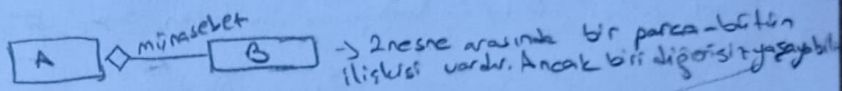 münasebet
A
B
→ 2 nesne arasında bir parça-bütün
ilişkisi vardır. Ancak biri diğerisiz yaşayabil